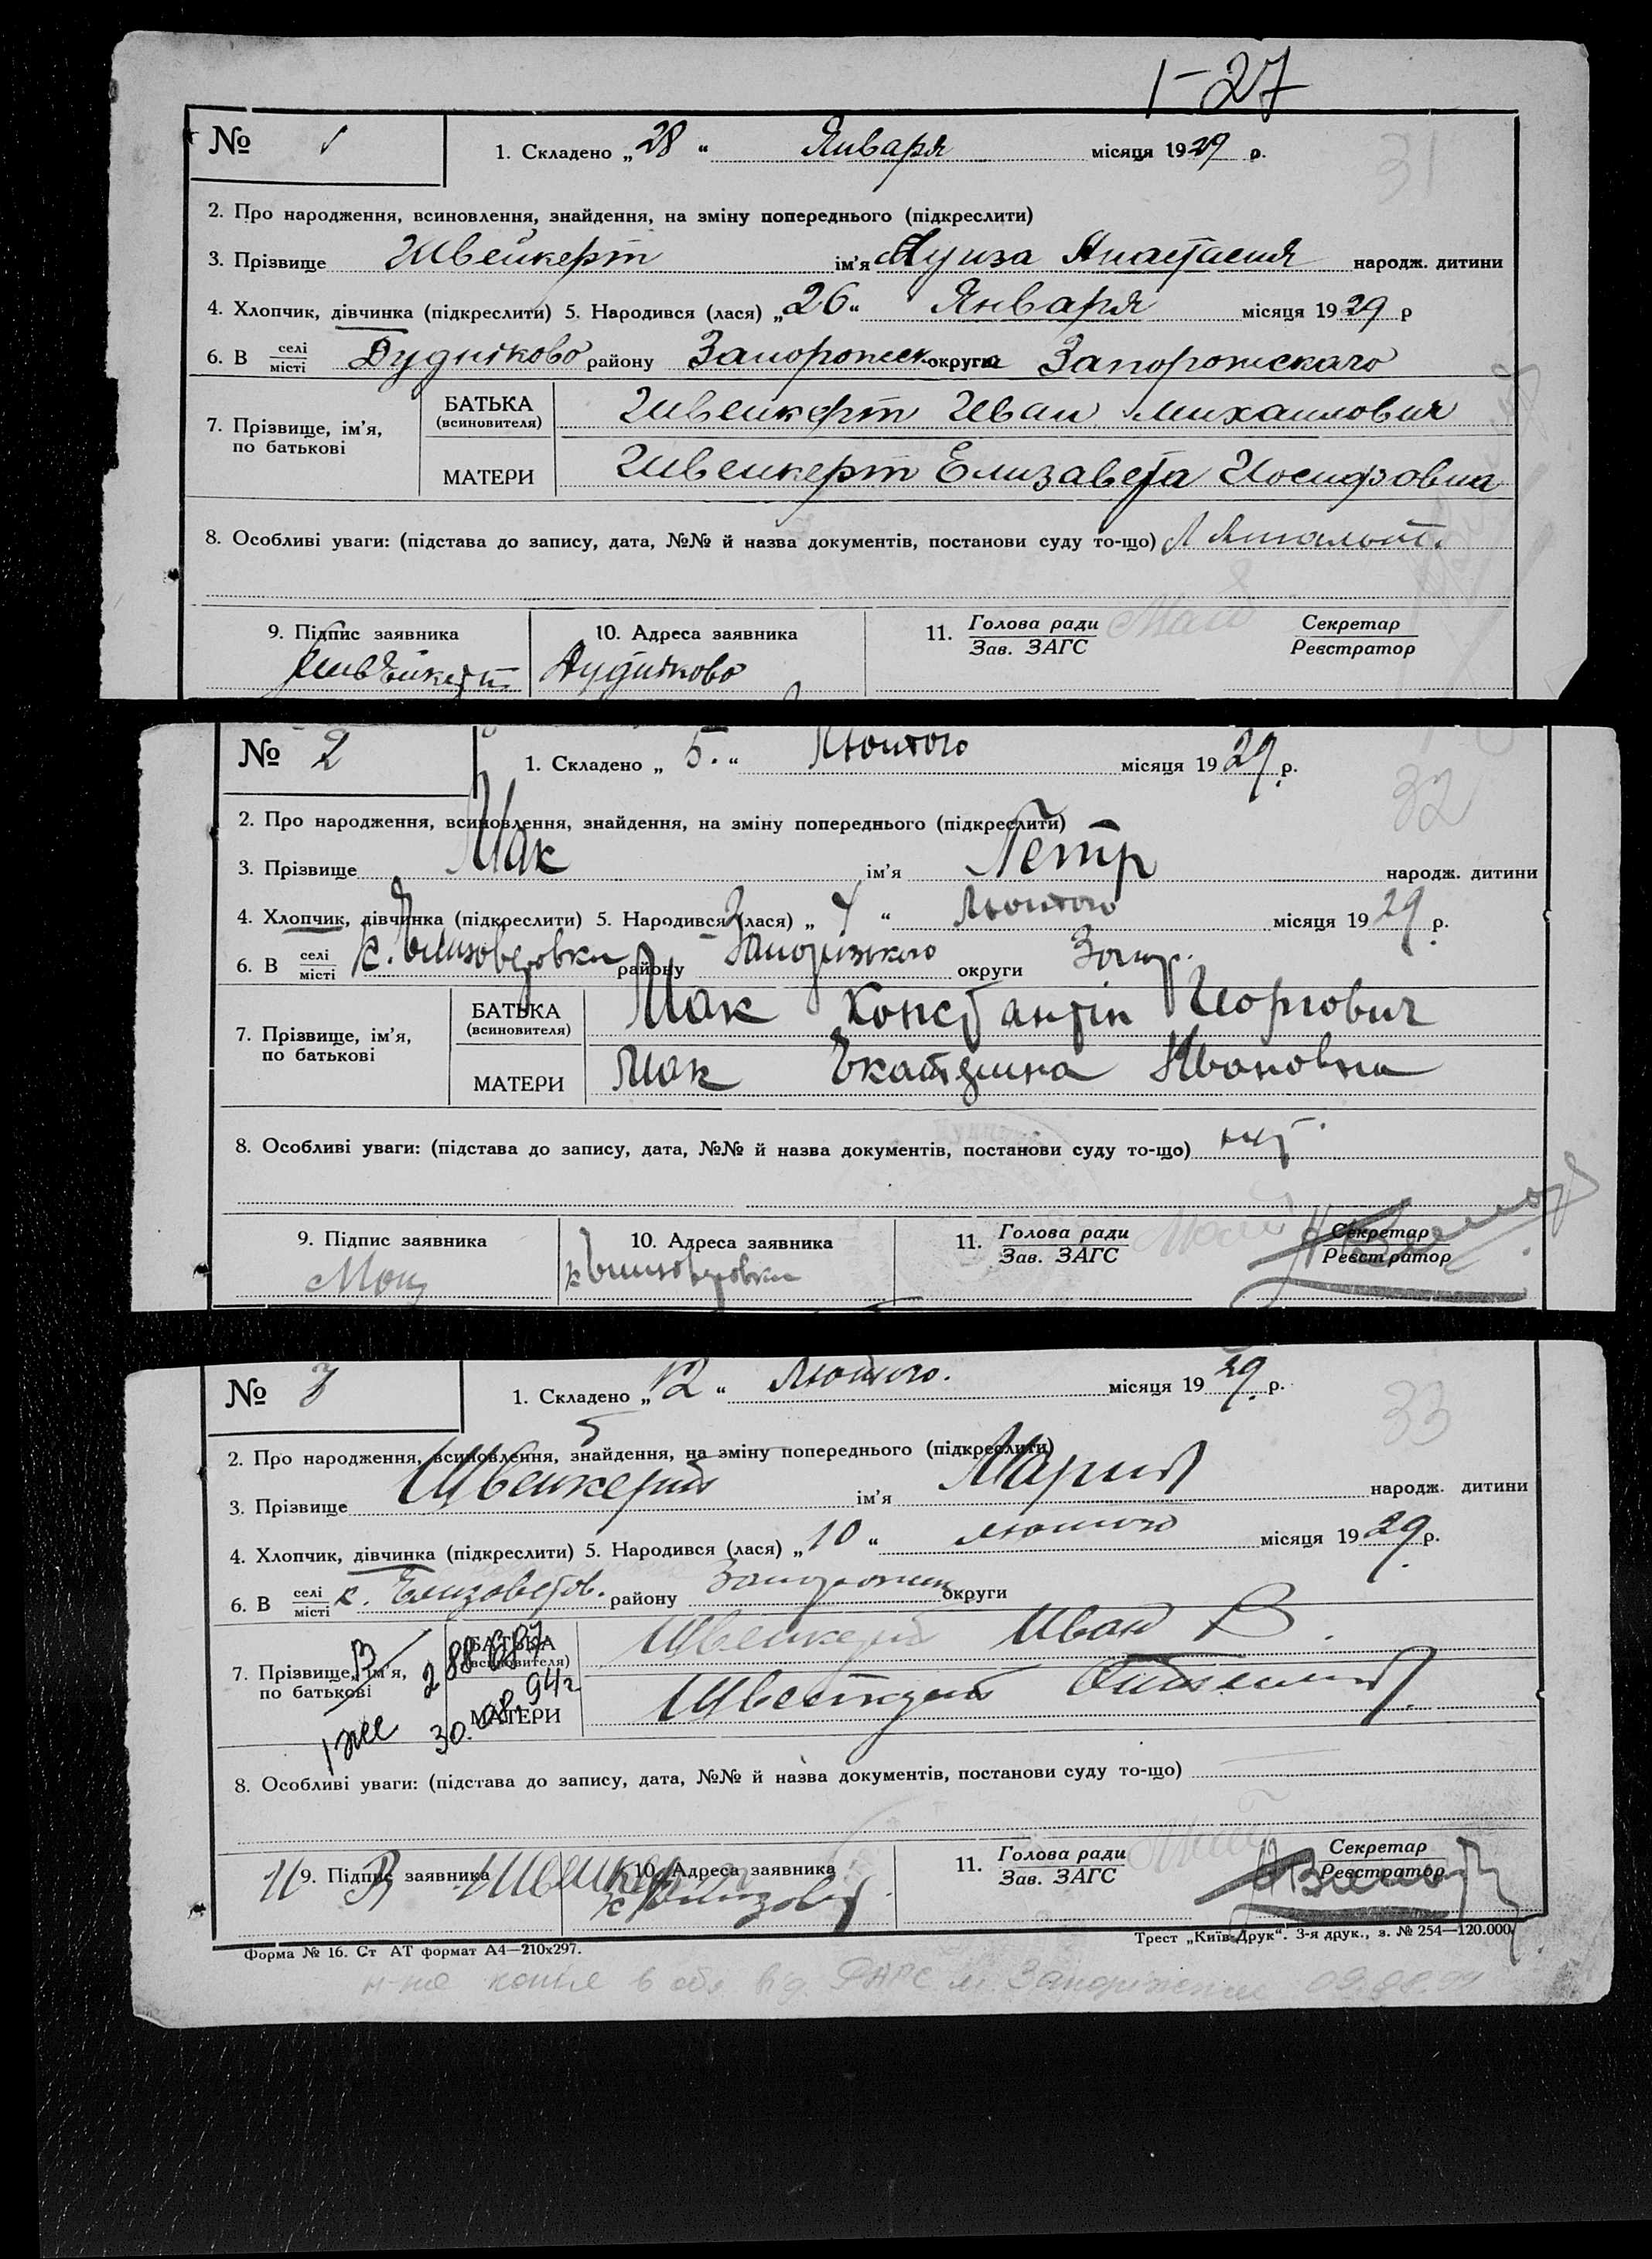 1-27
№ 1 1. Складено „28“ Января місяця 1929 р.
31
2. Про народження, всиновлення, знайдення, на зміну попереднього (підкреслити)
3. Прізвище Швейкерт ім'я Луиза Анастасия народж. дитини
4. Хлопчик, дівчинка (підкреслити) 5. Народився (лася) „26“ Января місяця 1929 р
6. В селі місті Дудніково району Запорожск округи Запорожскаго
7. Прізвище, ім'я, по батькові
БАТЬКА (всиновителя) Швейкерт Иван Михаилович
МАТЕРИ Швейкерт Елизавета Иосифовна
8. Особливі уваги: (підстава до запису, дата, №№ й назва документів, постанови суду то-що)
9. Підпис заявника 10. Адреса заявника 11. Голова ради Зав. ЗАГС Секретар Реєстратор
Швейкерт Дудніково
№ 2 1. Складено „5.“ Лютого місяця 1929 р.
32
2. Про народження, всиновлення, знайдення, на зміну попереднього (підкреслити)
3. Прізвище Мак ім'я Петр народж. дитини
4. Хлопчик, дівчинка (підкреслити) 5. Народився (лася) „4“ Лютого місяця 1929 р.
6. В селі місті к. Елизоветовки району Запоризького округи Запор.
7. Прізвище, ім'я, по батькові
БАТЬКА (всиновителя) Мак Константін Георгович
МАТЕРИ Мак Екатерина Ивановна
8. Особливі уваги: (підстава до запису, дата, №№ й назва документів, постанови суду то-що)
9. Підпис заявника 10. Адреса заявника 11. Голова ради Зав. ЗАГС Секретар Реєстратор
к Елизоветовки
№ 3 1. Складено „12“ Лютого. місяця 1929 р.
33
2. Про народження, всиновлення, знайдення, на зміну попереднього (підкреслити)
3. Прізвище Швейкерт ім'я Мария народж. дитини
4. Хлопчик, дівчинка (підкреслити) 5. Народився (лася) „10“ лютого місяця 1929 р.
6. В селі місті к. Елизоветов. району Запорожск округи
7. Прізвище, ім'я, по батькові
БАТЬКА (всиновителя) Швейкерт Иван В.
МАТЕРИ Швейкерт
30.08.94г
8. Особливі уваги: (підстава до запису, дата, №№ й назва документів, постанови суду то-що)
9. Підпис заявника 10. Адреса заявника 11. Голова ради Зав. ЗАГС Секретар Реєстратор
И В Швейкер к Елизовет
Форма № 16. Ст АТ формат А4—210х297. Трест „Київ-Друк“. 3-я друк., з. № 254—120.000